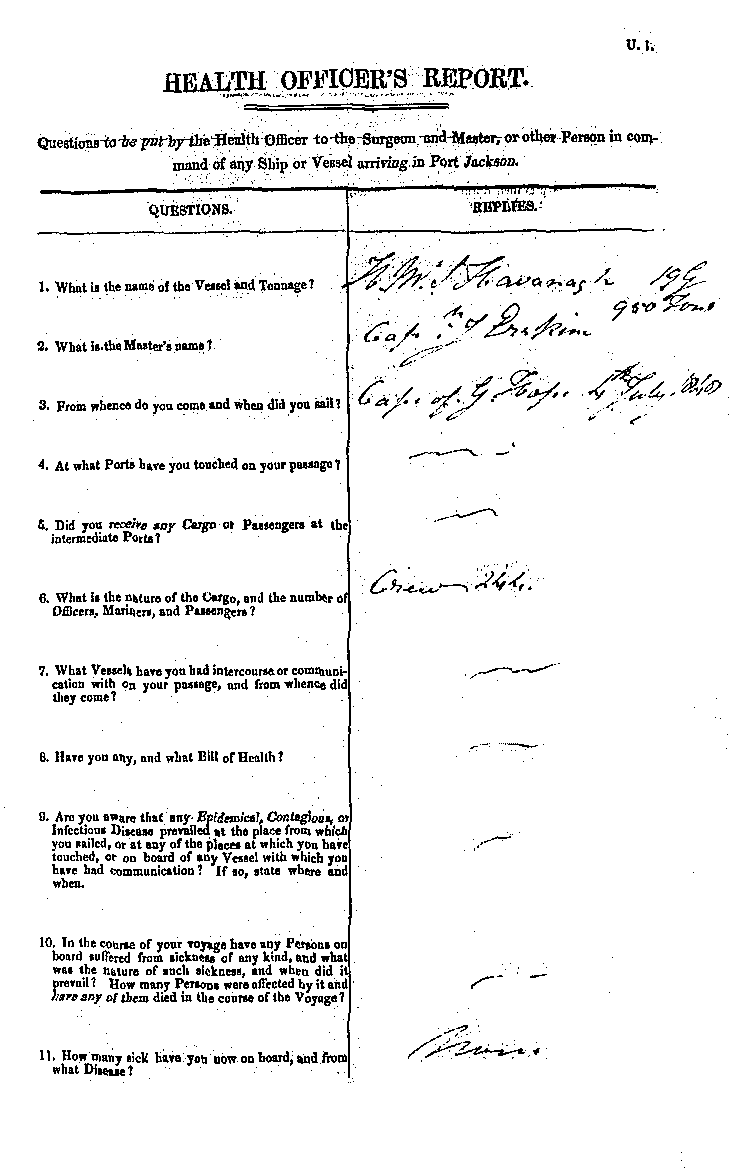 U. 1.
HEALTH OFFICER'S REPORT.
Questions to be put by the Health Officer to the Surgeon and Master, or other Person in com-
mand of any Ship or Vessel arriving in Port Jackson.
QUESTIONS.
REPLIES.
1. What is the name of the Vessel and Tonnage?
H.M.S Havanagh 19 G
950 Tons
2. What is the Master's name?
Capn J Erskine
3. From whence do you come and when did you sail?
Cape of G Hope 4th July
4. At what Ports have you touched on your passage?
5. Did you receive any Cargo or Passengers at the
intermediate Ports?
6. What is the nature of the Cargo, and the number of
Officers, Mariners, and Passengers?
Crew 244.
7. What Vessels have you had intercourse or communi-
cation with on your passage, and from whence did
they come?
8. Have you any, and what Bill of Health?
9. Are you aware that any Epidemical, Contagious, or
Infectious Disease prevailed at the place from which
you sailed, or at any of the places at which you have
touched, or on board of any Vessel with which you
have had communication? If so, state where and
when.
10. In the course of your voyage have any Persons on
board suffered from sickness of any kind, and what
was the nature of such sickness, and when did it
prevail? How many Persons were affected by it and
have any of them died in the course of the Voyage?
11. How many sick have you now on board, and from
what Disease?